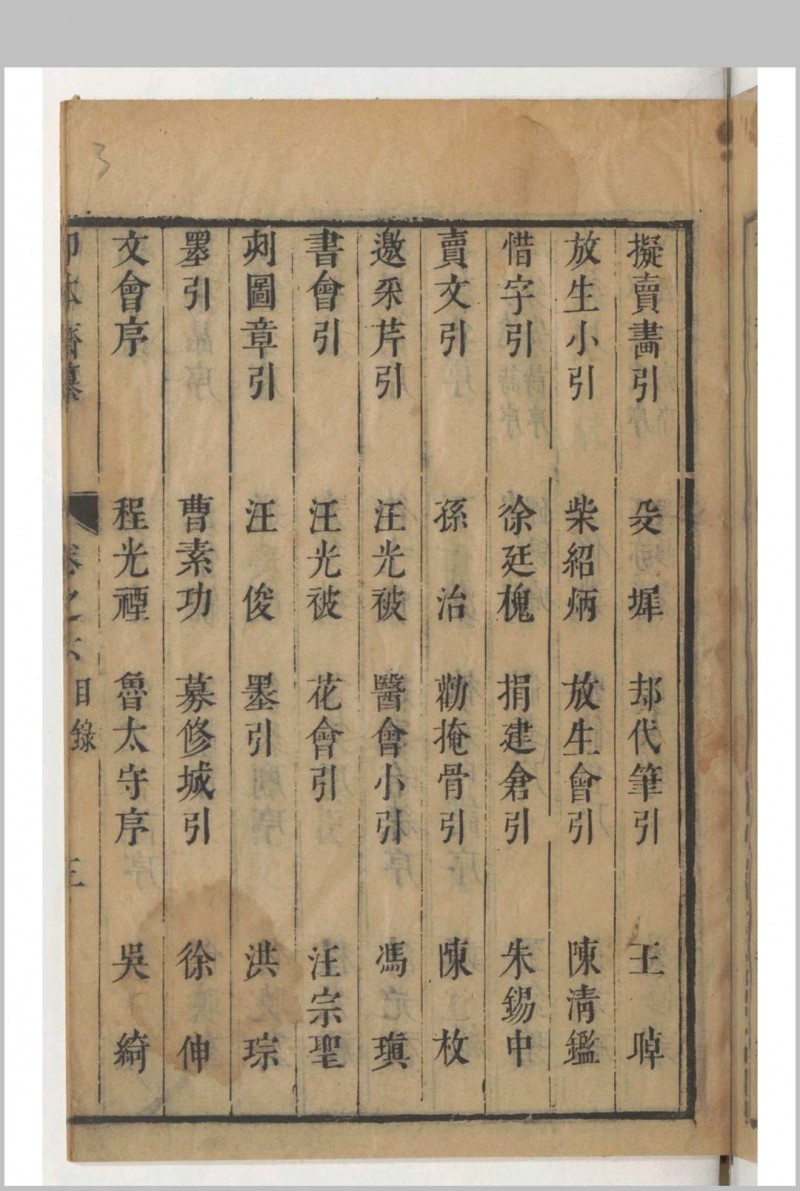 擬賣畵引 殳墀 却代筆引 王晫
放生小引 柴紹炳 放生會引 陳淸鑑
惜字引 徐廷槐 捐建倉引 朱錫中
賣文引 孫治 勸掩骨引 陳枚
邀采芹引 汪光被 醫會小引 馮瑱
書會引 汪光被 花會引 汪宗聖
刻圖章引 汪俊 墨引 洪琮
墨引 曹素功 募修城引 徐伸
文會序 程光禋 魯太守序 吳綺
卷之六 目錄 三
3